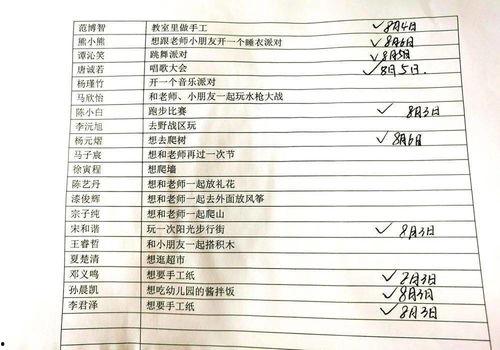 范博智 教室里做手工 ✓8月4日
熊小熊 想跟老师小朋友开一个睡衣派对 ✓8月6日
谭沁笑 跳舞派对 ✓8月5日
唐诚若 唱歌大会 ✓8月5日.
杨瑾竹 开一个音乐派对
马欣怡 和老师、小朋友一起玩水枪大战
陈小白 跑步比赛 ✓8月3日
李沅旭 去野战区玩
杨元熠 想去爬树 ✓8月6日
马子宸 想和老师再过一次节
徐寅程 想爬墙
陈艺丹 想和老师一起放礼花
漆俊辉 想和老师一起去外面放风筝
宗子纯 想和老师一起爬山
宋和谐 玩一次阳光步行街 ✓8月3日
王睿哲 和小朋友一起搭积木
夏楚清 想逛超市
邓义鸣 想要手工纸 ✓8月3日
孙晨凯 想吃幼儿园的酱拌饭 ✓8月3日
李君泽 想要手工纸 ✓8月3日